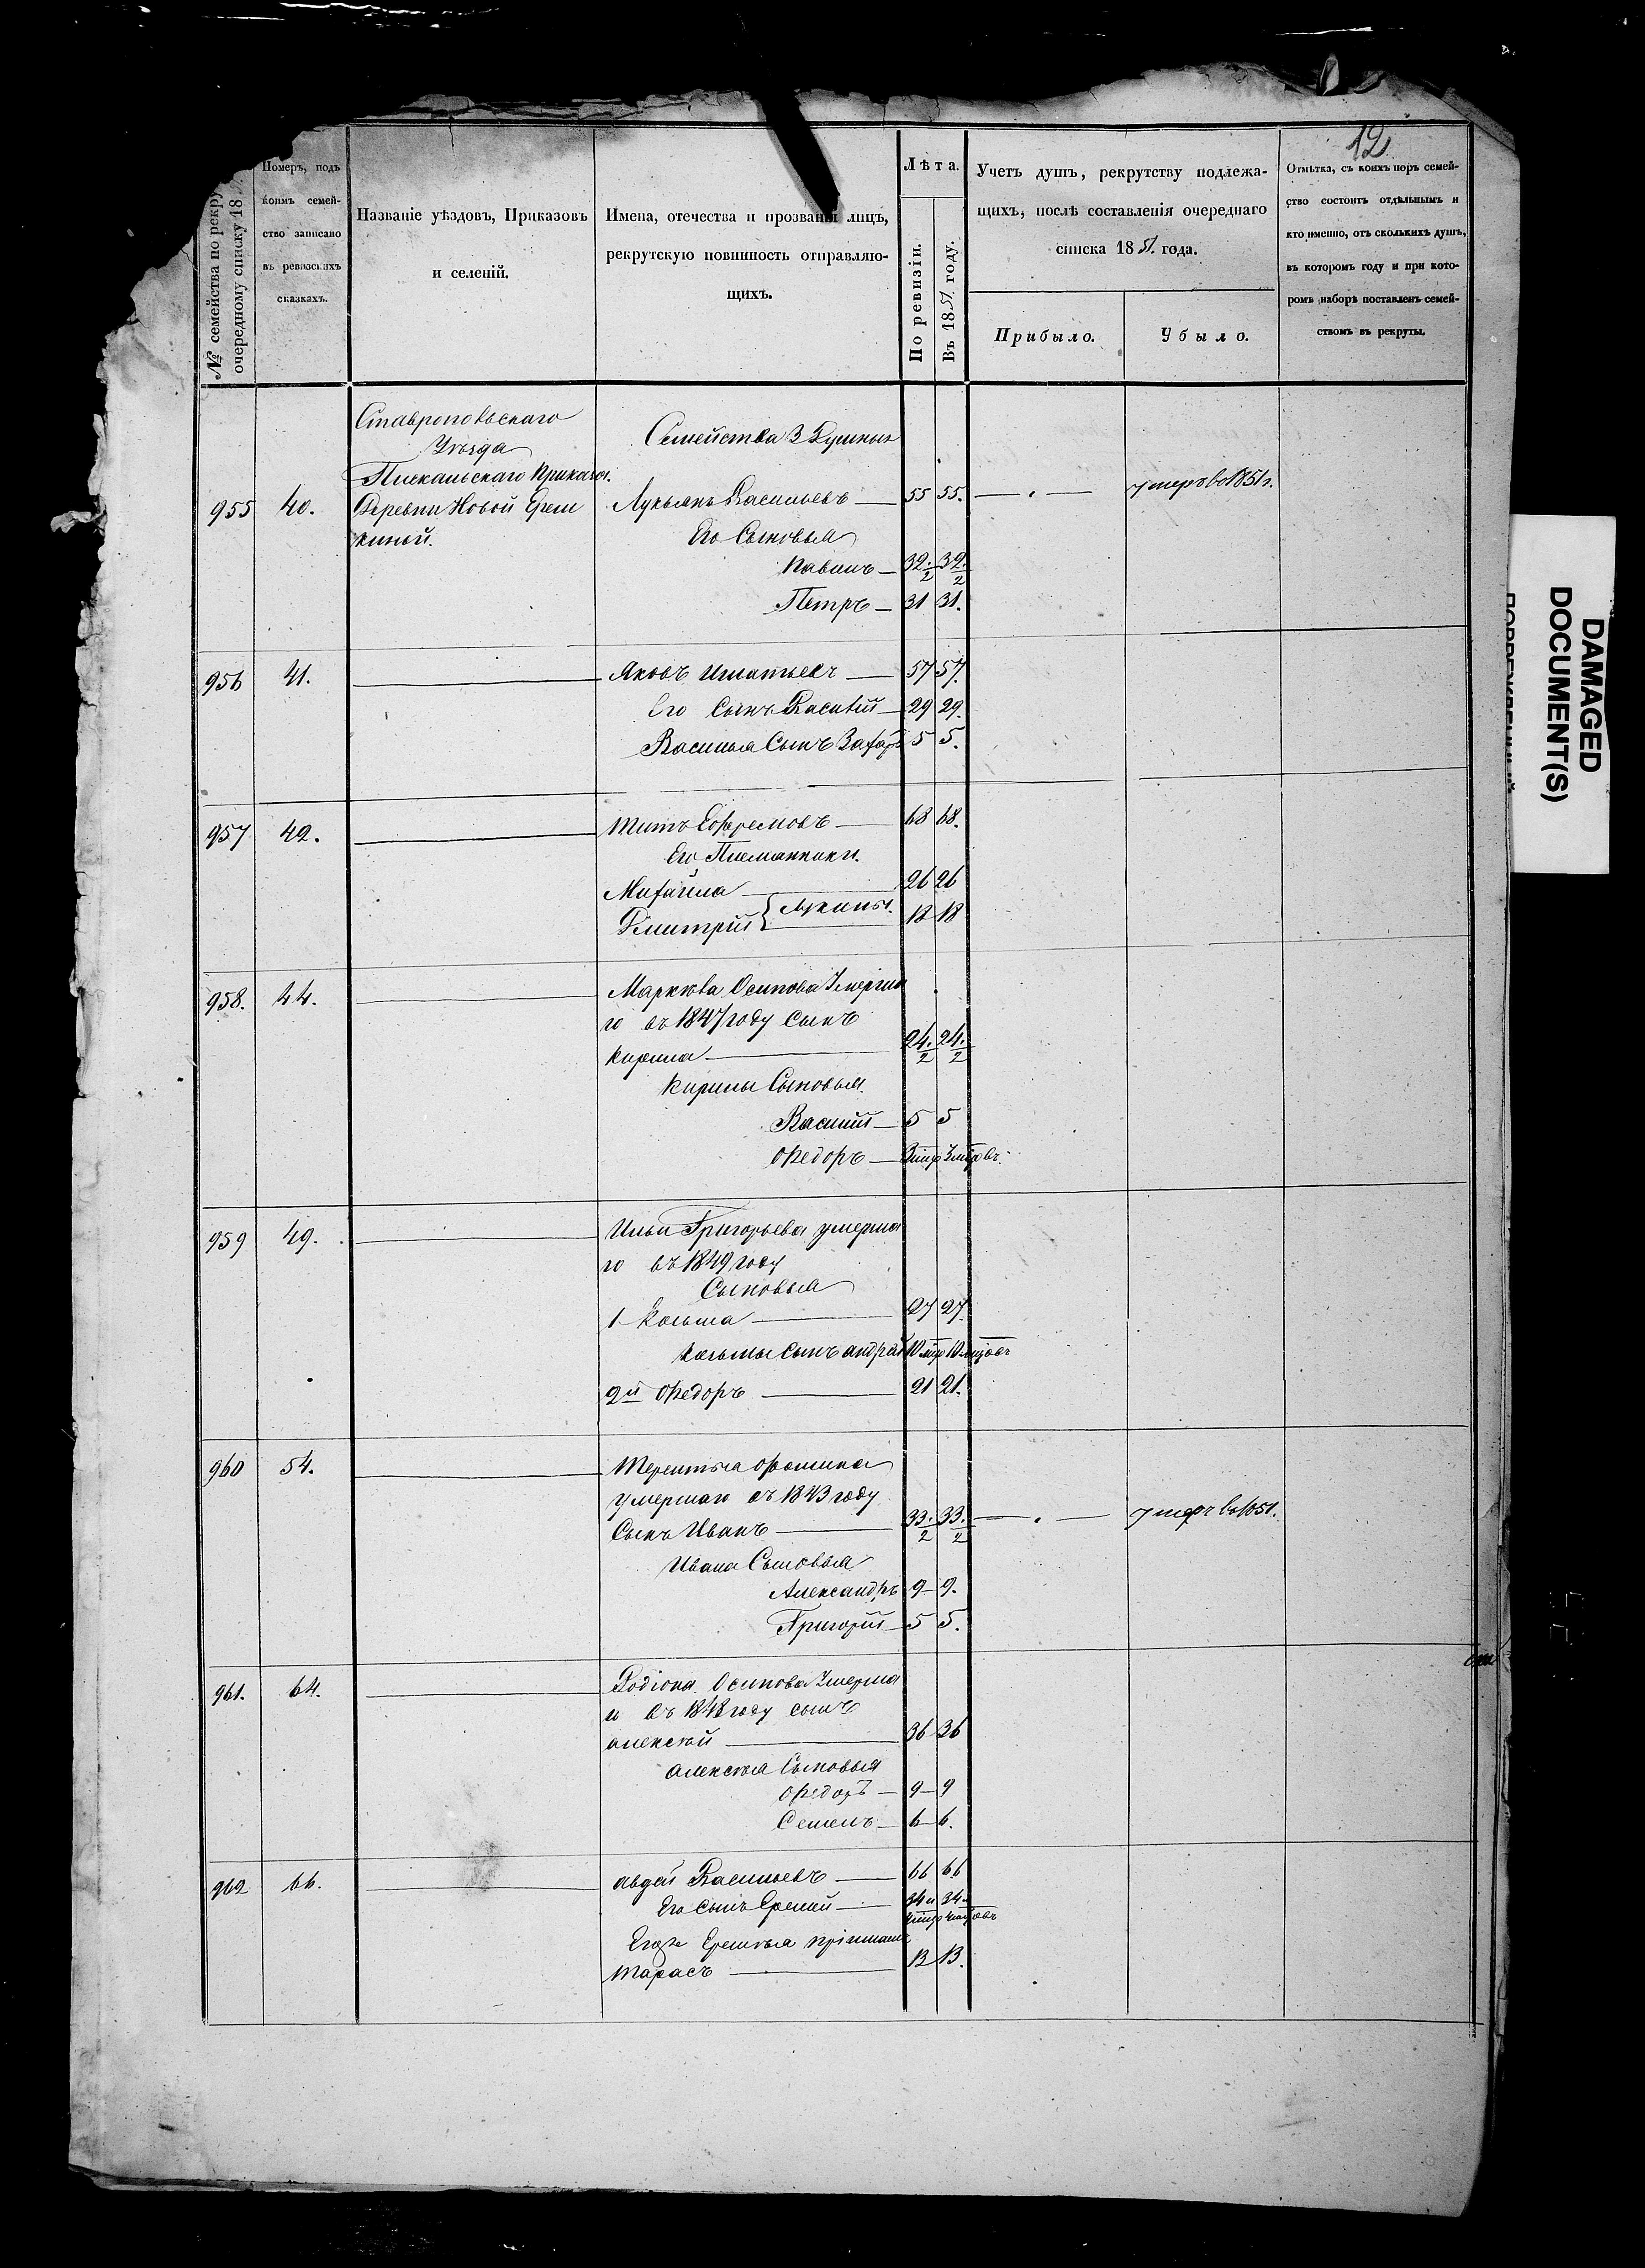 12
№ семейства по рекру
очередному списку 18
Номеръ, подъ
коимъ семей-
ство записано
въ ревизскихъ
сказкахъ.
Названіе уѣздовъ, Приказовъ
и селеній.
Имена, отечества и прозванія лицъ,
рекрутскую повинность отправляю-
щихъ.
Лѣта.
По ревизіи.
Въ 1851 году.
Учетъ душъ, рекрутству подлежа-
щихъ, послѣ составленія очереднаго
списка 1851 года.
Прибыло.
Убыло.
Отмѣтка, съ коихъ поръ семей-
ство состоитъ отдѣльнымъ и
кто именно, отъ сколькихъ душъ,
въ которомъ году и при кото-
ромъ наборѣ поставленъ семей-
ствомъ въ рекруты.
Ставропольскаго
Уѣзда
Семейства 3 душныя
Пискальскаго Приказа.
955 40. Деревни Новой Ерем Лукьянъ Васильевъ 55 55. умеръ въ 1851 г.
киной. Его Сыновья
Павилъ 32. 2 32. 2
Петръ 31 31.
956 41. Яковъ Игнатьевъ 57 57.
Его Сынъ Василій 29 29.
Василья Сынъ Захаръ 5 5.
957 42. Титъ Ефремовъ 68 68.
Его Племянники.
Михайла 26 26
Дмитрій Лукины. 18 18
958. 44. Маркѣла Осипова Умерша
го въ 1847 году Сынъ
Кирила 24. 2 24. 2
Кирилы Сыновья.
Василій 5 5
Федоръ
959 49. Ильи Григорьева умерша
го въ 1849 году
Сыновья
1 Козьма 27 27.
Козьмы Сынъ Андрей
2й Федоръ 21 21.
960 54. Терентья Фомина
Умершаго въ 1843 году
Сынъ Иванъ 33. 2 33. 2 умеръ въ 1851.
Ивана Сыновья
Александръ 9 9.
Григорій 5 5.
961. 64. Родіона Осипова Умерша
го въ 1848 году сынъ
Алексѣй 36 36
Алексѣя Сыновья
Федоръ 9 9
Семенъ 6 6.
962 66. Авдей Васильевъ 66 66
Его Сынъ Еремей 34 34
Егоже Еремѣя пріимышъ
Тарасъ 13 13.
DAMAGED
DOCUMENT(S)